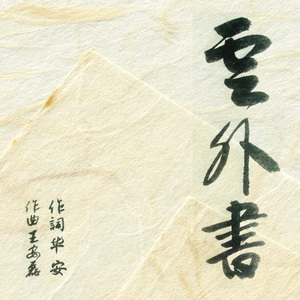 雲外書
作詞华安
作曲王安磊